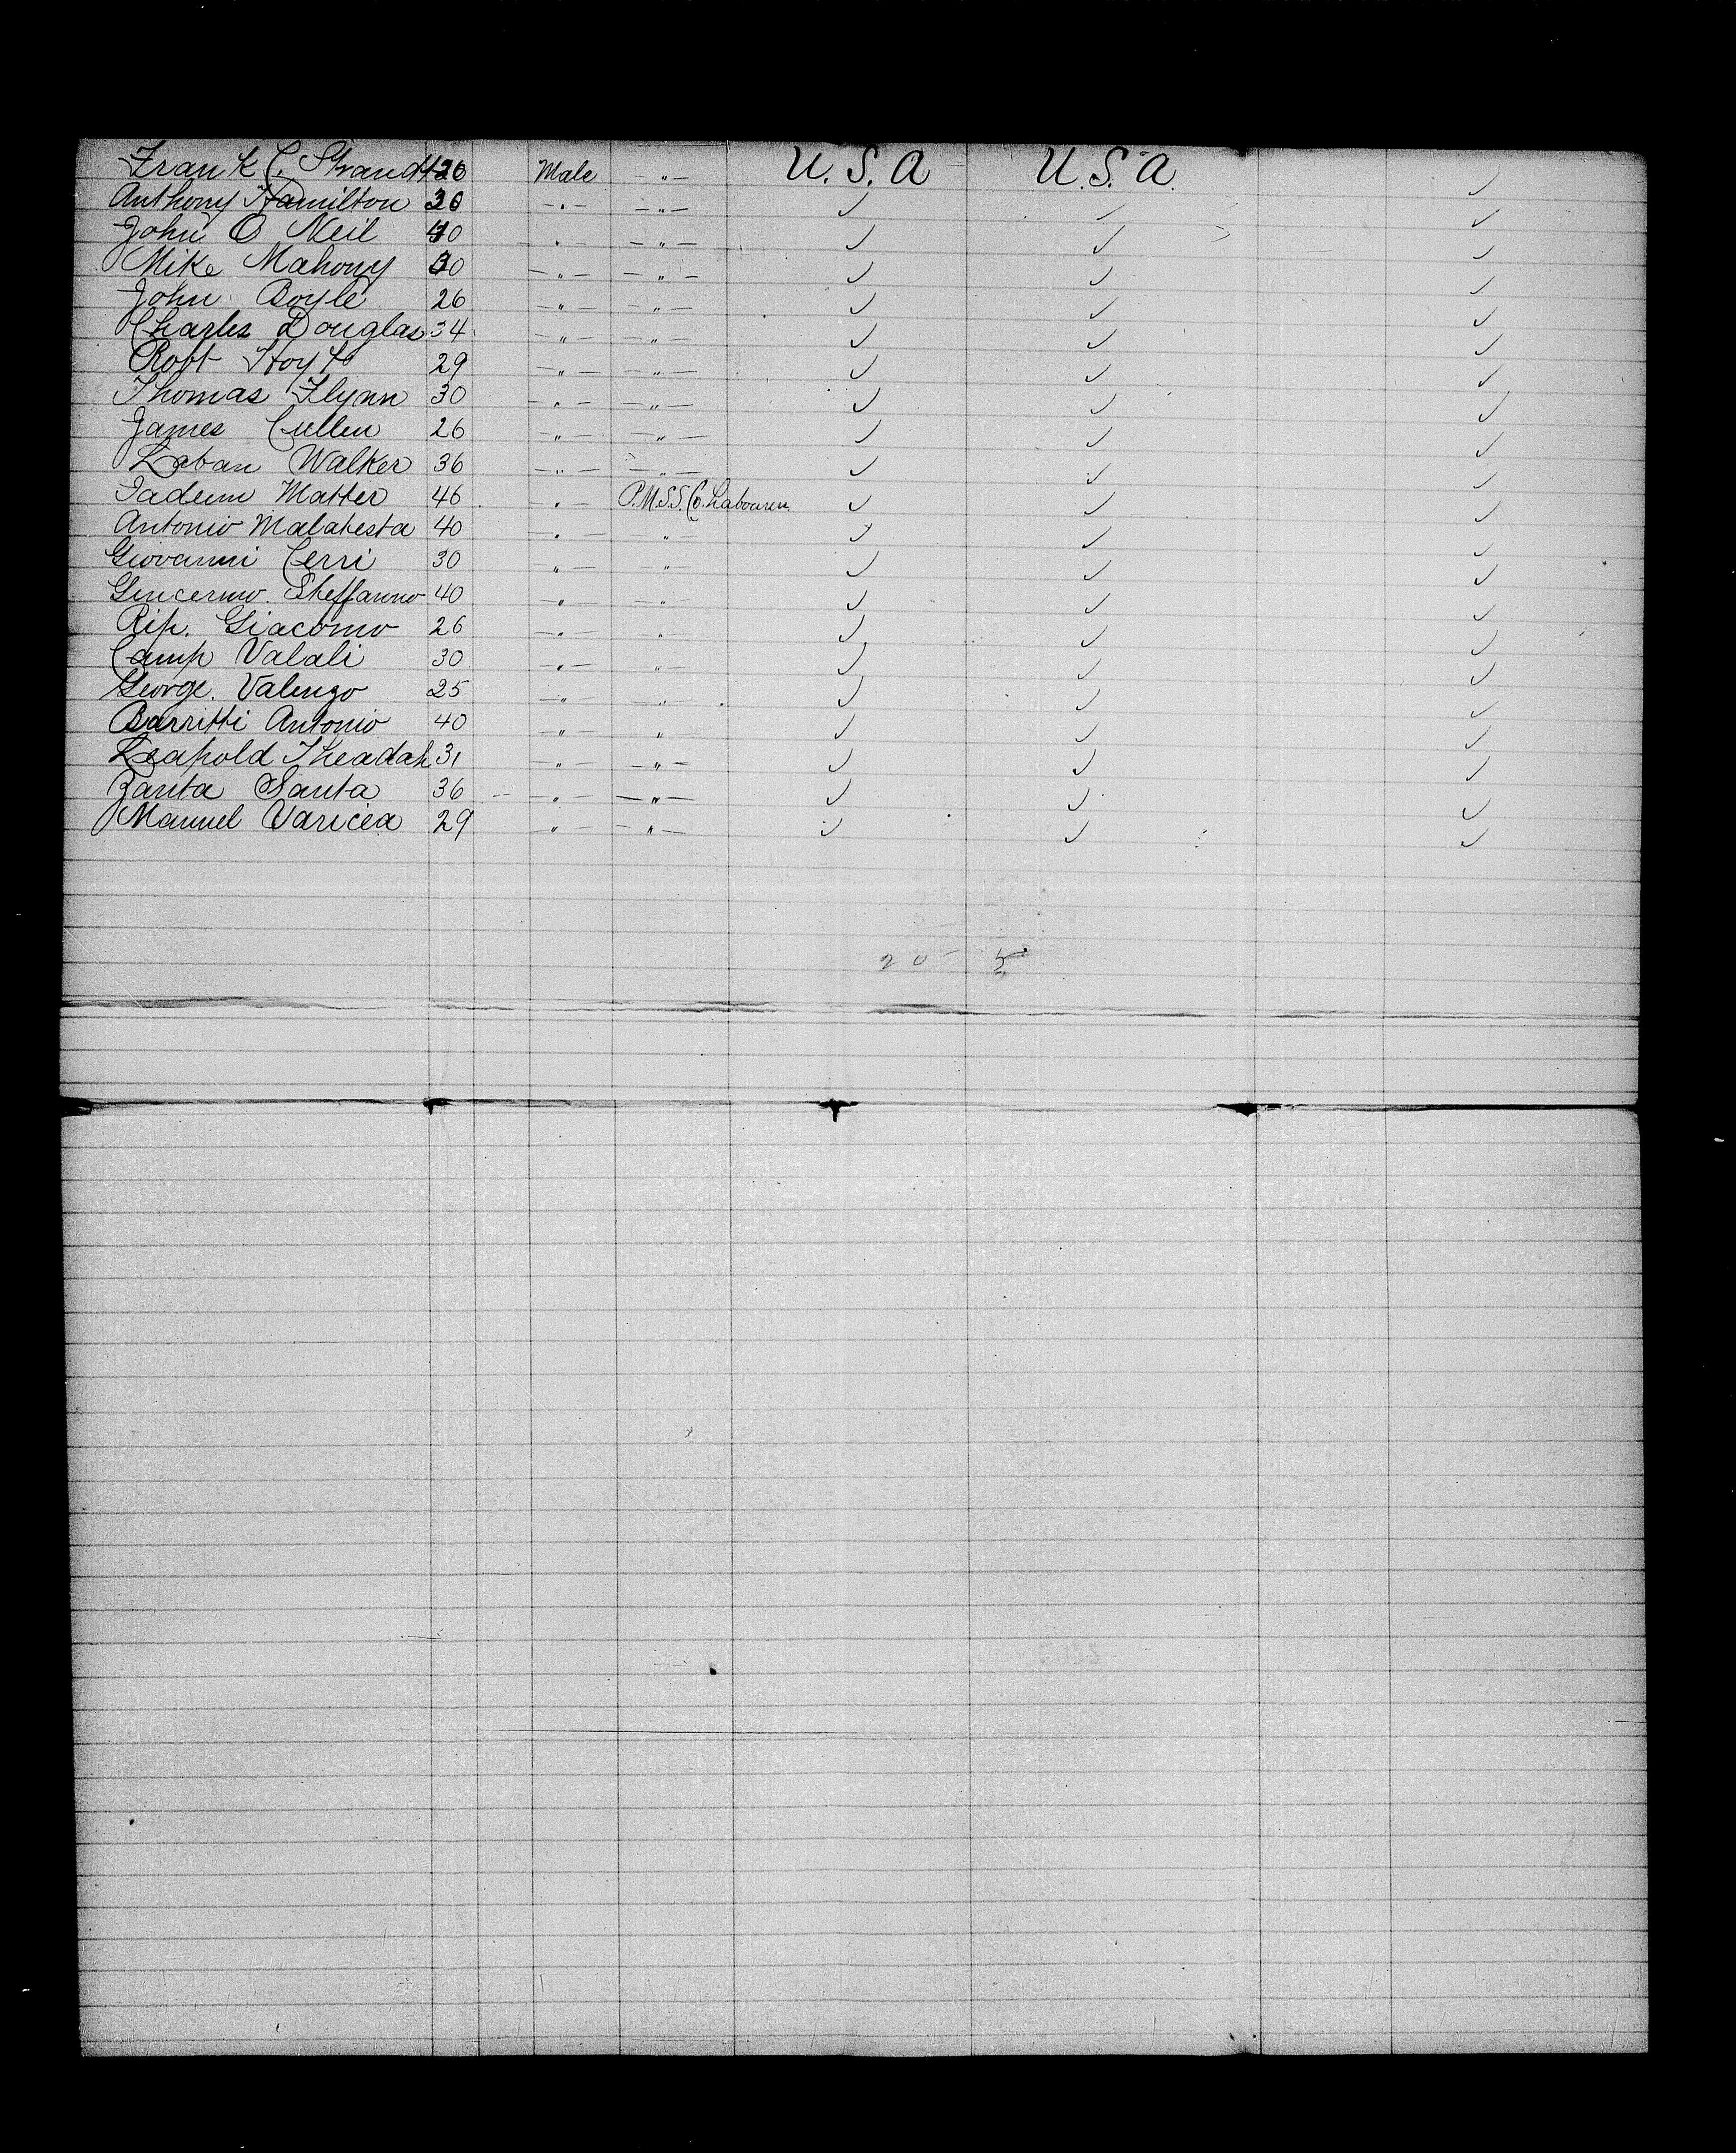 Frank C. Strandt 26 Male -"- U.S.A U.S.A. ✓
Anthony Hamilton 30 -"- -"- ✓ ✓ ✓
John O Neil 40 " -"- ✓ ✓ ✓
Mike Mahony 30 -"- -"- ✓ ✓ ✓
John Boyle 26 " -"- ✓ ✓ ✓
Charles Douglas 34 -"- -"- ✓ ✓ ✓
Robt Hoyt 29 -"- -"- ✓ ✓ ✓
Thomas Flynn 30 -"- -"- ✓ ✓ ✓
James Cullen 26 -"- -"- ✓ ✓ ✓
Laban Walker 36 -"- -"- ✓ ✓ ✓
Matter 46 " P.M.S.S.Co. Labourers ✓ ✓ ✓
Antonio Malatesta 40 -"- -"- ✓ ✓ ✓
Giovanni Cerri 30 -"- -"- ✓ ✓ ✓
Steffanno 40 -"- " ✓ ✓ ✓
Rip. Giacomo 26 -"- " ✓ ✓ ✓
Camp Valali 30 -"- " ✓ ✓ ✓
George Valenzo 25 -"- -"- ✓ ✓ ✓
Barritti Antonio 40 -"- " ✓ ✓ ✓
Leapold Theadah 31 -"- -"- ✓ ✓ ✓
Zanta Santa 36 -"- -"- ✓ ✓ ✓
Manuel Varicea 29 -"- -"- ✓ ✓ ✓
20 - 5